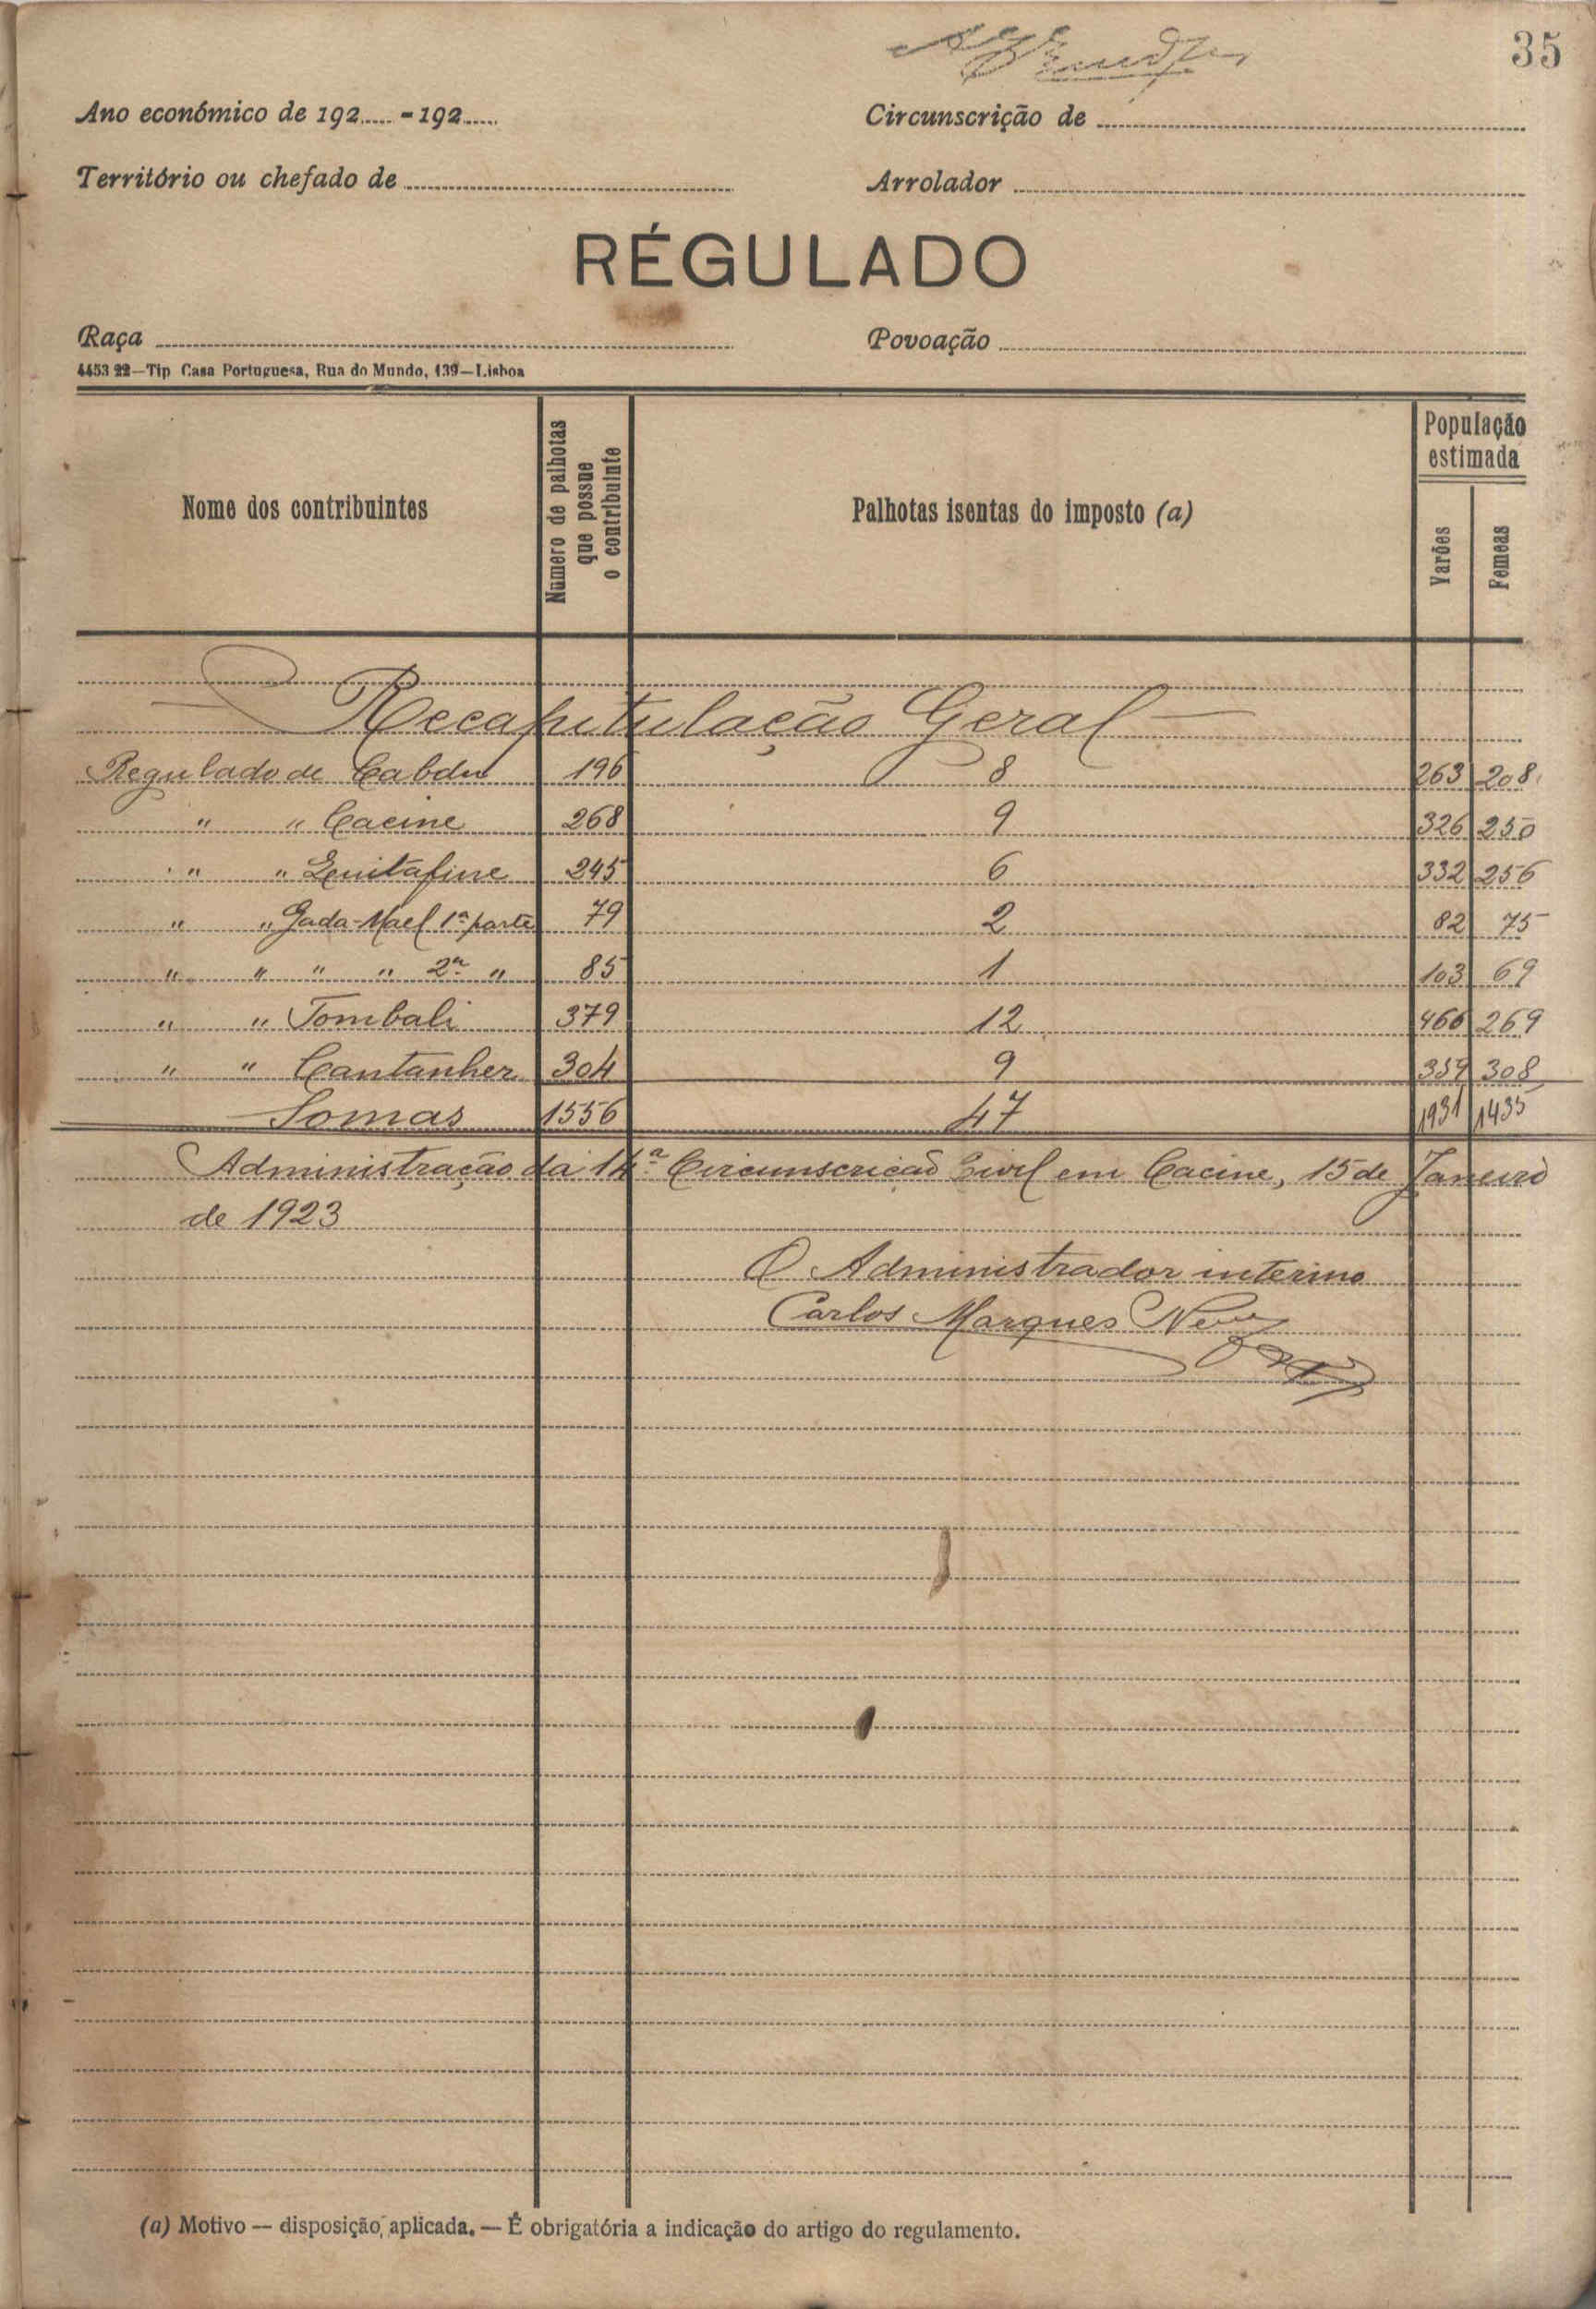 35
Ano económico de 192..... - 192.....
Circunscrição de
Território ou chefado de
Arrolador
RÉGULADO
Raça
Povoação
4453 22—Tip Casa Portuguesa, Rua do Mundo, 139—Lisboa
Nome dos contribuintes
Número de palhotas que possue o contribuinte
Palhotas isentas do imposto (a)
População estimada
Varões
Femeas
Recapitulação Geral
Regulado de Cabdu 196 8 263 208
" " Cacine 268 9 326 250
" " 245 6 332 256
" " Gada-Mael 1ª parte 79 2 82 75
" " " " 2ª " 85 1 103 69
" " Tombali 379 12 466 269
" " Cantanhez 304 9 359 308
Somas 1556 47 1931 1435
Administração da 14ª Circunscrição Civil em Cacine, 15 de Janeiro
de 1923
O Administrador interino
Carlos Marques
(a) Motivo — disposição, aplicada. — É obrigatória a indicação do artigo do regulamento.